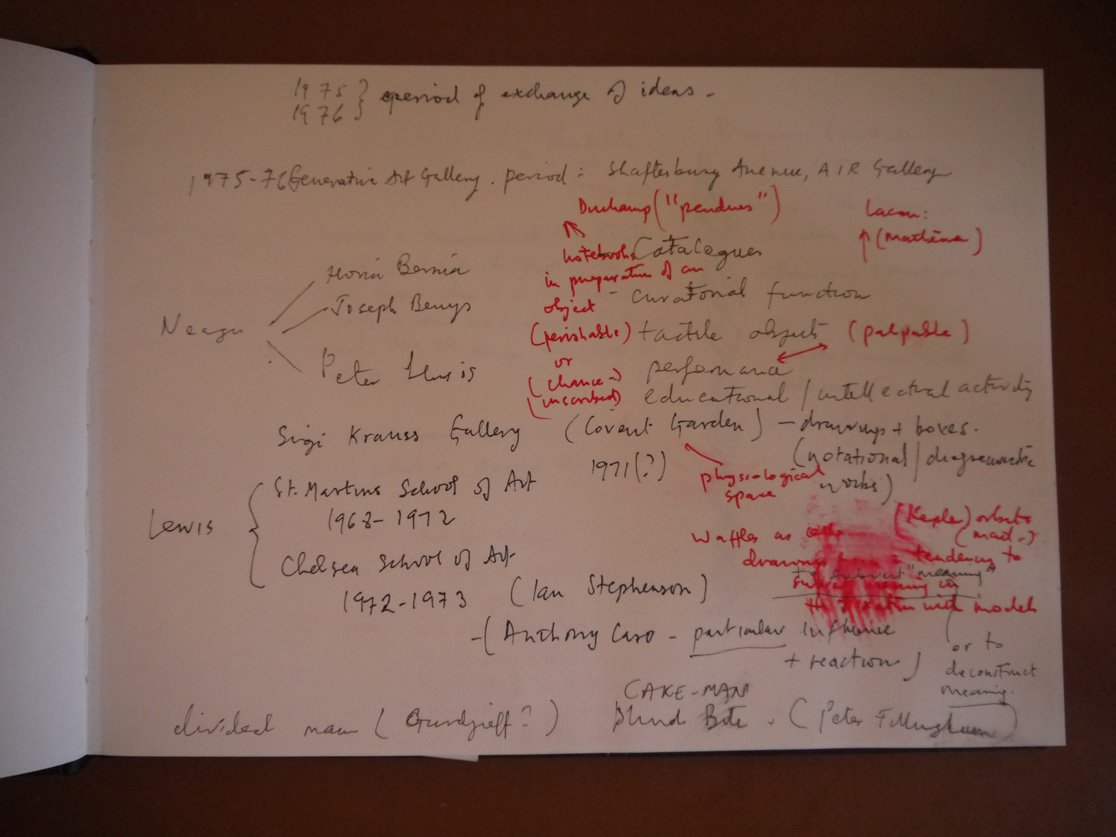 1975
1976 } period of exchange of ideas -
1975-76 Generative Art Gallery. period: Shaftesbury Avenue, AIR Gallery
Duchamp ("pendues")
Lacan:
(mathème)
notebooks
in preparation of an
object
(perishable)
or
(chance-)
Catalogues
- curatorial function
tactile objects (palpable)
performance
educational / intellectual activity
Neagu
Horia Bernia
Joseph Beuys
Peter Lewis
Sigi Krauss Gallery (Covent Garden) - drawings + boxes.
1971(?)
(notational / diagrammatic
works)
physiological
space
Lewis {
St. Martins School of Art
1968-1972
Chelsea School of Art
1972-1973 (Ian Stephenson)
Waffles as
(Kepler) orbits
drawings
tendency to
to subvert "meaning"
with models
-(Anthony Caro - particular influence
+ reaction)
or to
deconstruct
meaning.
divided man (Gurdjieff?)
CAKE-MAN
blind Bite. (Peter Fillingham)